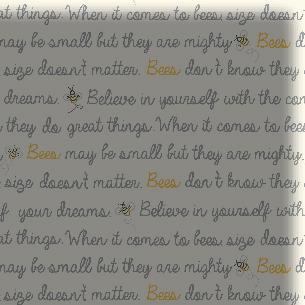 at things. When it comes to bees, size doesn't
may be small but they are mighty. Bees d
size doesn't matter. Bees don't know they
dreams. Believe in yourself with the con
they do great things. When it comes to bees
Bees may be small but they are mighty.
size doesn't matter. Bees don't know they
f your dreams. Believe in yourself with
at things. When it comes to bees, size doesn't
may be small but they are mighty. Bees d
size doesn't matter. Bees don't know they